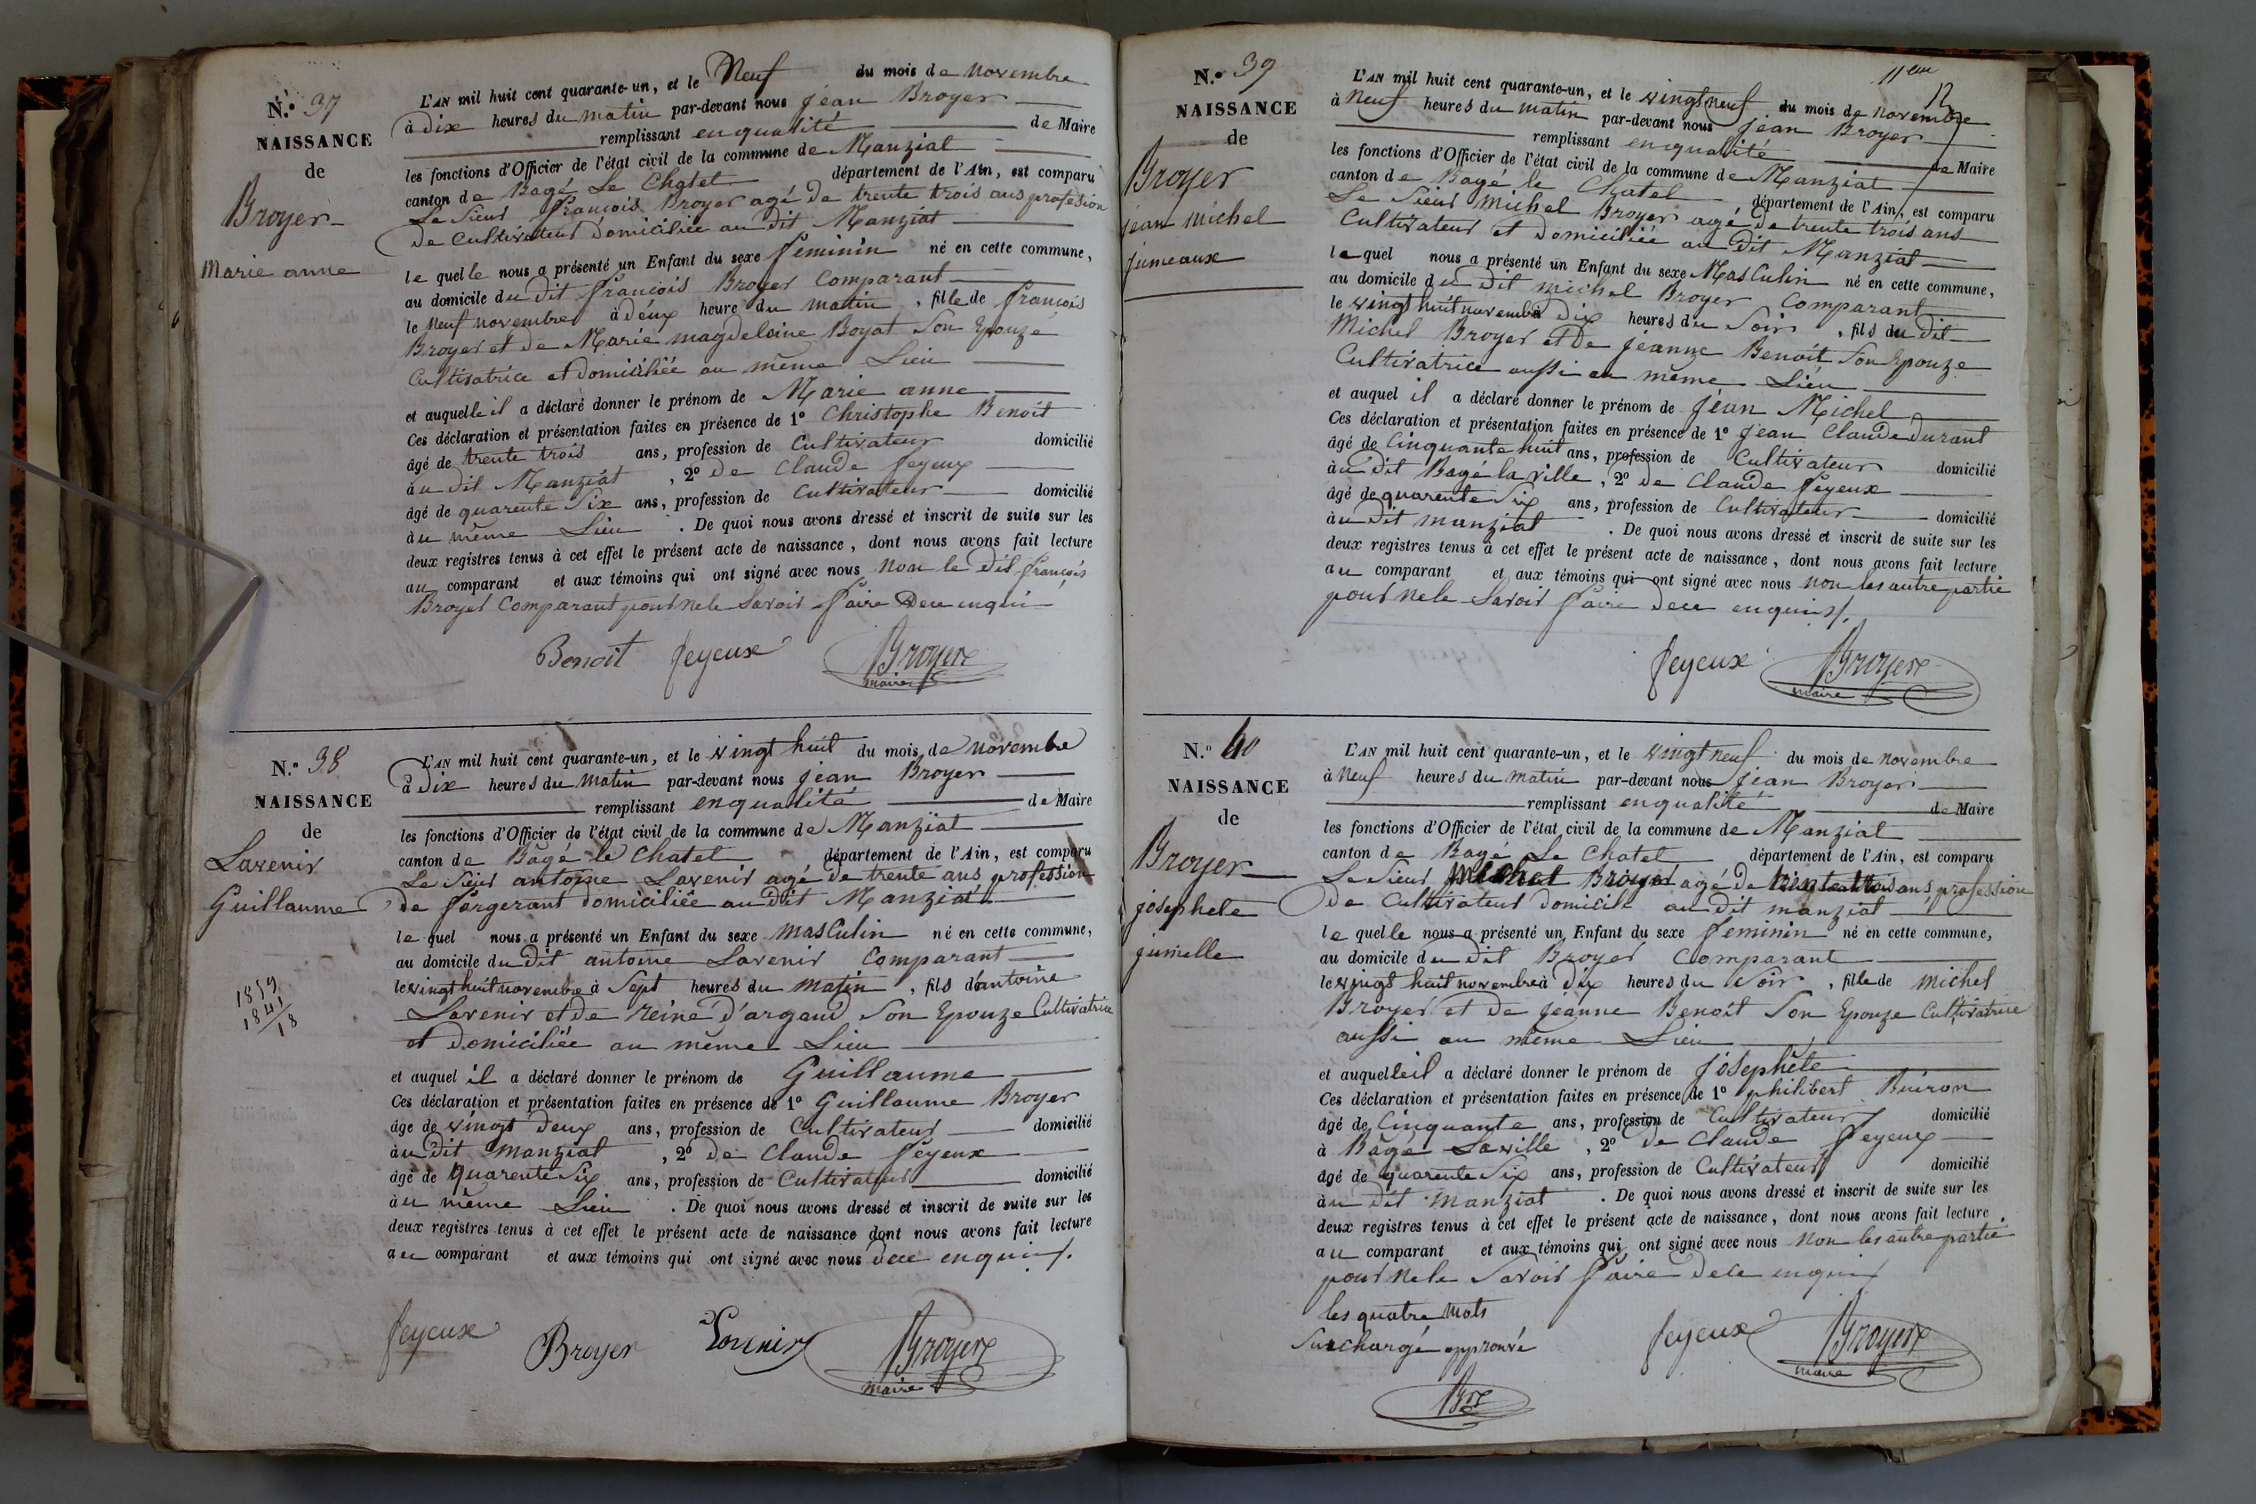 N.º 37
NAISSANCE
de
Broyer
Marie anne
L'AN mil huit cent quarante-un, et le Neuf du mois de novembre
à Dix heures du matin par-devant nous jean Broyer
remplissant en qualité de Maire
les fonctions d'Officier de l'état civil de la commune de Manziat
canton de Bagé Le Chatel département de l'Ain, est comparu
Le Sieur françois Broyer agé de trente trois ans profesion
de Cultivateur domiciliée au dit Manziat
le quelle nous a présenté un Enfant du sexe féminin né en cette commune,
au domicile du dit françois Broyer Comparant
le Neuf novembre à deux heure du matin, fille de françois
Broyer et de Marie magdeleine Boyat Son Epouze
Cultivatrice et domiciliée au même Lieu
et auquelle il a déclaré donner le prénom de Marie anne
Ces déclaration et présentation faites en présence de 1º Christophe Benoit
âgé de trente trois ans, profession de Cultivateur domicilié
à u dit Manziat, 2º de Claude feyeux
âgé de quarente Six ans, profession de Cultivateur domicilié
à u même Lieu. De quoi nous avons dressé et inscrit de suite sur les
deux registres tenus à cet effet le présent acte de naissance, dont nous avons fait lecture
au comparant et aux témoins qui ont signé avec nous non le dit françois
Broyer Comparant pour ne le Savoir faire dece enqui
Benoit feyeux Broyer
maire
N.º 38
NAISSANCE
de
Lavenir
Guillaume
1859
1841
18
L'AN mil huit cent quarante-un, et le vingt huit du mois de novembre
à Dix heures du matin par-devant nous jean Broyer
remplissant en qualité de Maire
les fonctions d'Officier de l'état civil de la commune de Manziat
canton de Bagé le Chatel département de l'Ain, est comparu
Le Sieur antoine Lavenir agé de trente ans profession
de forgerant domiciliée au dit Manziat
le quel nous a présenté un Enfant du sexe masculin né en cette commune,
au domicile du dit antoine Lavenir Comparant
le vingt huit novembre à Sept heures du matin, fils d'antoine
Lavenir et de reine d'argaud Son Epouze Cultivatrice
et domiciliée au même Lieu
et auquel il a déclaré donner le prénom de Guillaume
Ces déclaration et présentation faites en présence de 1º Guillaume Broyer
âge de vingt deux ans, profession de Cultivateur domicilié
à u dit manziat, 2º de Claude feyeux
âgé de quarente Six ans, profession de Cultivateur domicilié
à u même Lieu. De quoi nous avons dressé et inscrit de suite sur les
deux registres tenus à cet effet le présent acte de naissance dont nous avons fait lecture
au comparant et aux témoins qui ont signé avec nous dece enquis
feyeux Broyer Lavenir Broyer
maire
11eme
12
N.º 39
NAISSANCE
de
Broyer
jean michel
jumeaux
L'AN mil huit cent quarante-un, et le vingt neuf du mois de novembre
à Neuf heures du matin par-devant nous jean Broyer
remplissant en qualité de Maire
les fonctions d'Officier de l'état civil de la commune de Manziat
canton de Bagé le Chatel, département de l'Ain, est comparu
Le Sieur michel Broyer agé de trente trois ans
Cultivateur et domiciliée au dit Manziat
le quel nous a présenté un Enfant du sexe Masculin né en cette commune,
au domicile du dit michel Broyer Comparant
le vingt huit novembre dix heures du Soir, fils du dit
Michel Broyer et De jeanne Benoit Son Epouze
Cultivatrice aussi au même Lieu
et auquel il a déclaré donner le prénom de jean Michel
Ces déclaration et présentation faites en présence de 1º jean Claude durant
âgé de Cinquante huit ans, profession de Cultivateur domicilié
à u dit Bagé la ville, 2º de Claude feyeux
âgé de quarente Six ans, profession de Cultivateur domicilié
à u dit manziat. De quoi nous avons dressé et inscrit de suite sur les
deux registres tenus à cet effet le présent acte de naissance, dont nous avons fait lecture
au comparant et aux témoins qui ont signé avec nous non les autre partie
pour ne le Savoir faire dece enquis
feyeux Broyer
maire
N.º 40
NAISSANCE
de
Broyer
josephete
jumelle
L'AN mil huit cent quarante-un, et le vingt neuf du mois de novembre
à Neuf heures du matin par-devant nous jean Broyer
remplissant en qualité de Maire
les fonctions d'Officier de l'état civil de la commune de Manziat
canton de Bagé Le Chatel département de l'Ain, est comparu
Le Sieur michel Broyer agé de trente trois ans profession
de Cultivateur domicilie au dit manziat
le quelle nous a présenté un Enfant du sexe féminin né en cette commune,
au domicile du dit Broyer Comparant
le vingt huit novembre à dix heures du Soir, fille de michel
Broyer et de jeanne Benoit Son Epouze Cultivatrice
aussi au même Lieu
et auquelle il a déclaré donner le prénom de josephete
Ces déclaration et présentation faites en présence de 1º philibert Buiron
âgé de Cinquante ans, profession de Cultivateur domicilié
à Bagé Laville, 2º de Claude feyeux
âgé de quarente Six ans, profession de Cultivateur domicilié
à u dit manziat. De quoi nous avons dressé et inscrit de suite sur les
deux registres tenus à cet effet le présent acte de naissance, dont nous avons fait lecture
au comparant et aux témoins qui ont signé avec nous non les autre partie
pour ne le Savoir faire dece enquis
les quatre mots
Surchargé approuvé
feyeux Broyer
maire